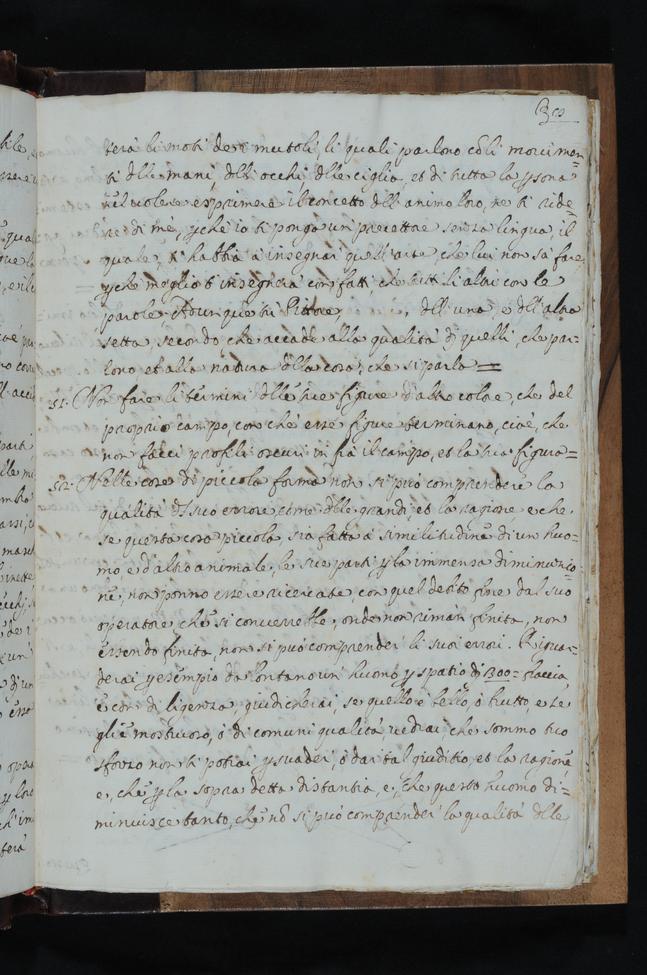 30
terà li moti dessi mutoli, li quali parlono cõ li movimen-
ti dlle mani, dlli occhi, dlle ciglia, et di tutta la psona
nel volere esprimere il concetto dll animo loro, ne ti ride-
re di me, pche io ti ponga un precettore senza lingua, il
quale, ti habbia à insegnar quell'arte che lui non sà fare
pche meglio ti insegnerà con fatti, che tutti li altri con le
parole. Adunque tu Pittore, dll una e dll altra
setta, secondo che accade alla qualità di quelli, che par-
lono et alla natura dlla cosa, che si parla =
51. Non fare li termini dlle tue figure d'altro colore, che del
proprio campo, con che esse figure terminano, cioè, che
non facci profili oscuri in frà il campo, et la tua figura =
52. Nelle cose di piccola forma non si può comprendere la
qualità dl suo errore come dlle grandi, et la ragione e che,
se questa cosa piccola, sia fatta à similitudine di un huo-
mo, e d'altro animale, le sue parti p la immensa diminutio-
ne, non ponno essere ricercate, con quel debito fine dal suo
operatore che si converrebbe, onde non riman finita, non
essendo finita, non si può comprender li suoi errori. Riguar-
derai p esempio da lontano un huomo p spatio di 300 = braccia,
e con diligenza, giudicherai, se quello è bello, ò brutto, e se
gliè mostruoso, ò di comuni qualità, vedrai che sommo tuo
sforzo non ti potrai psuader, ò dar tal giuditio, et la ragione
e, che p la sopra detta distantia, e, che questo huomo di-
minuisce tanto, che nõ si può comprender la qualità dlle